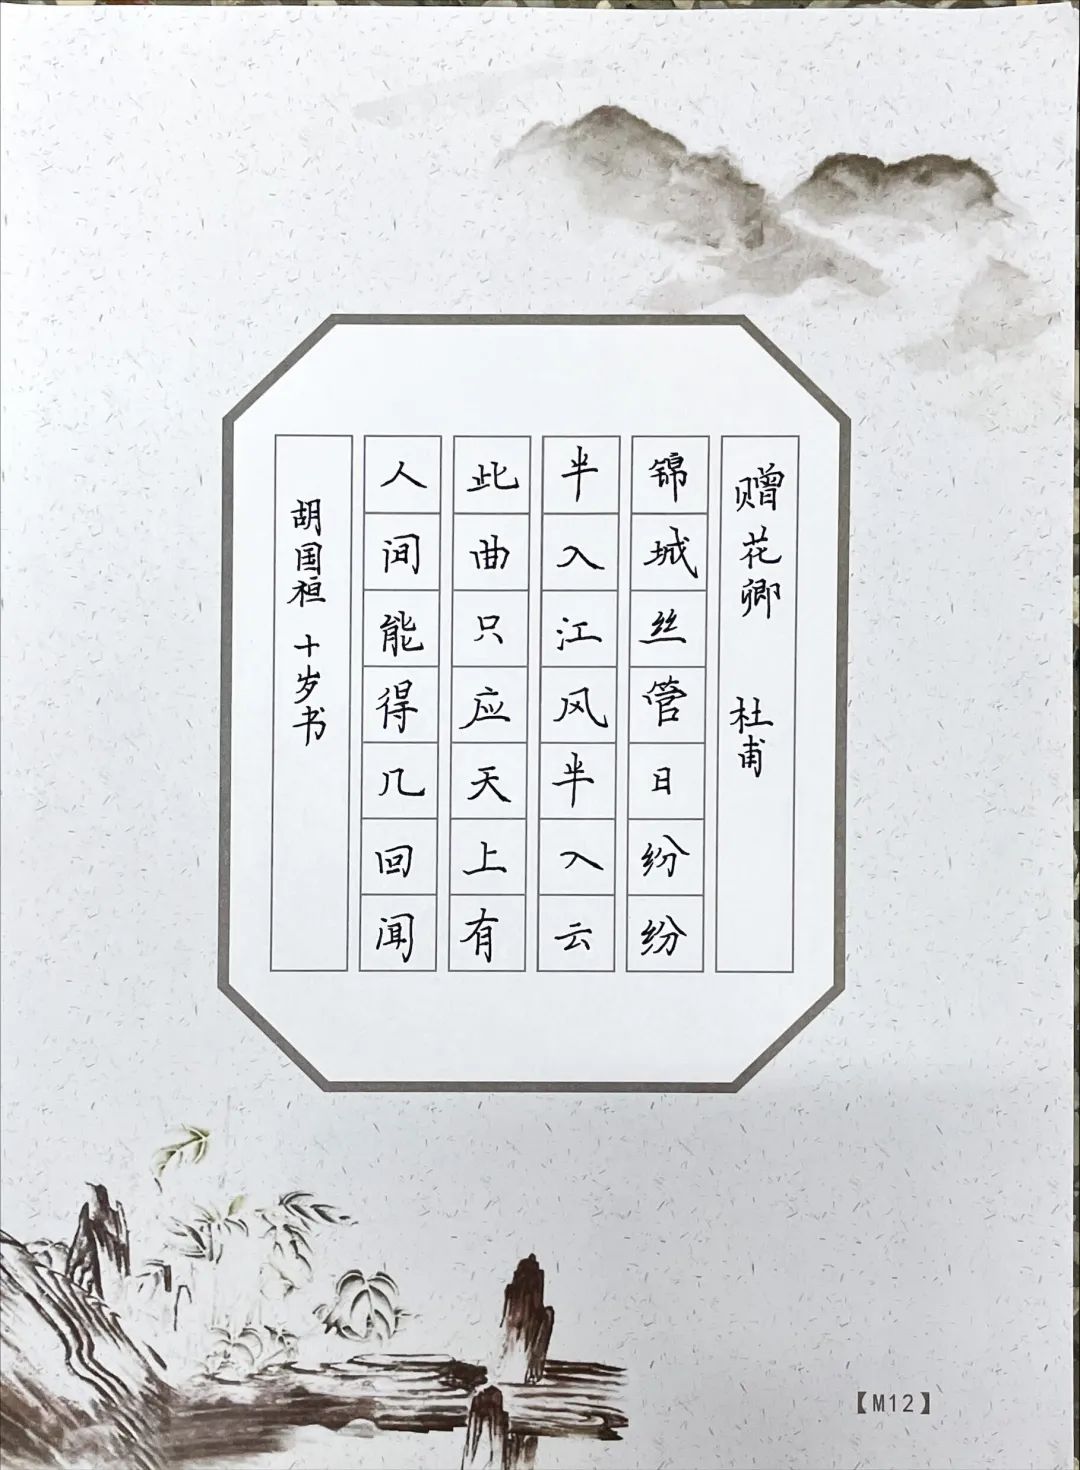 赠花卿 杜甫
锦城丝管日纷纷
半入江风半入云
此曲只应天上有
人间能得几回闻
胡国桓 十岁书
【M12】